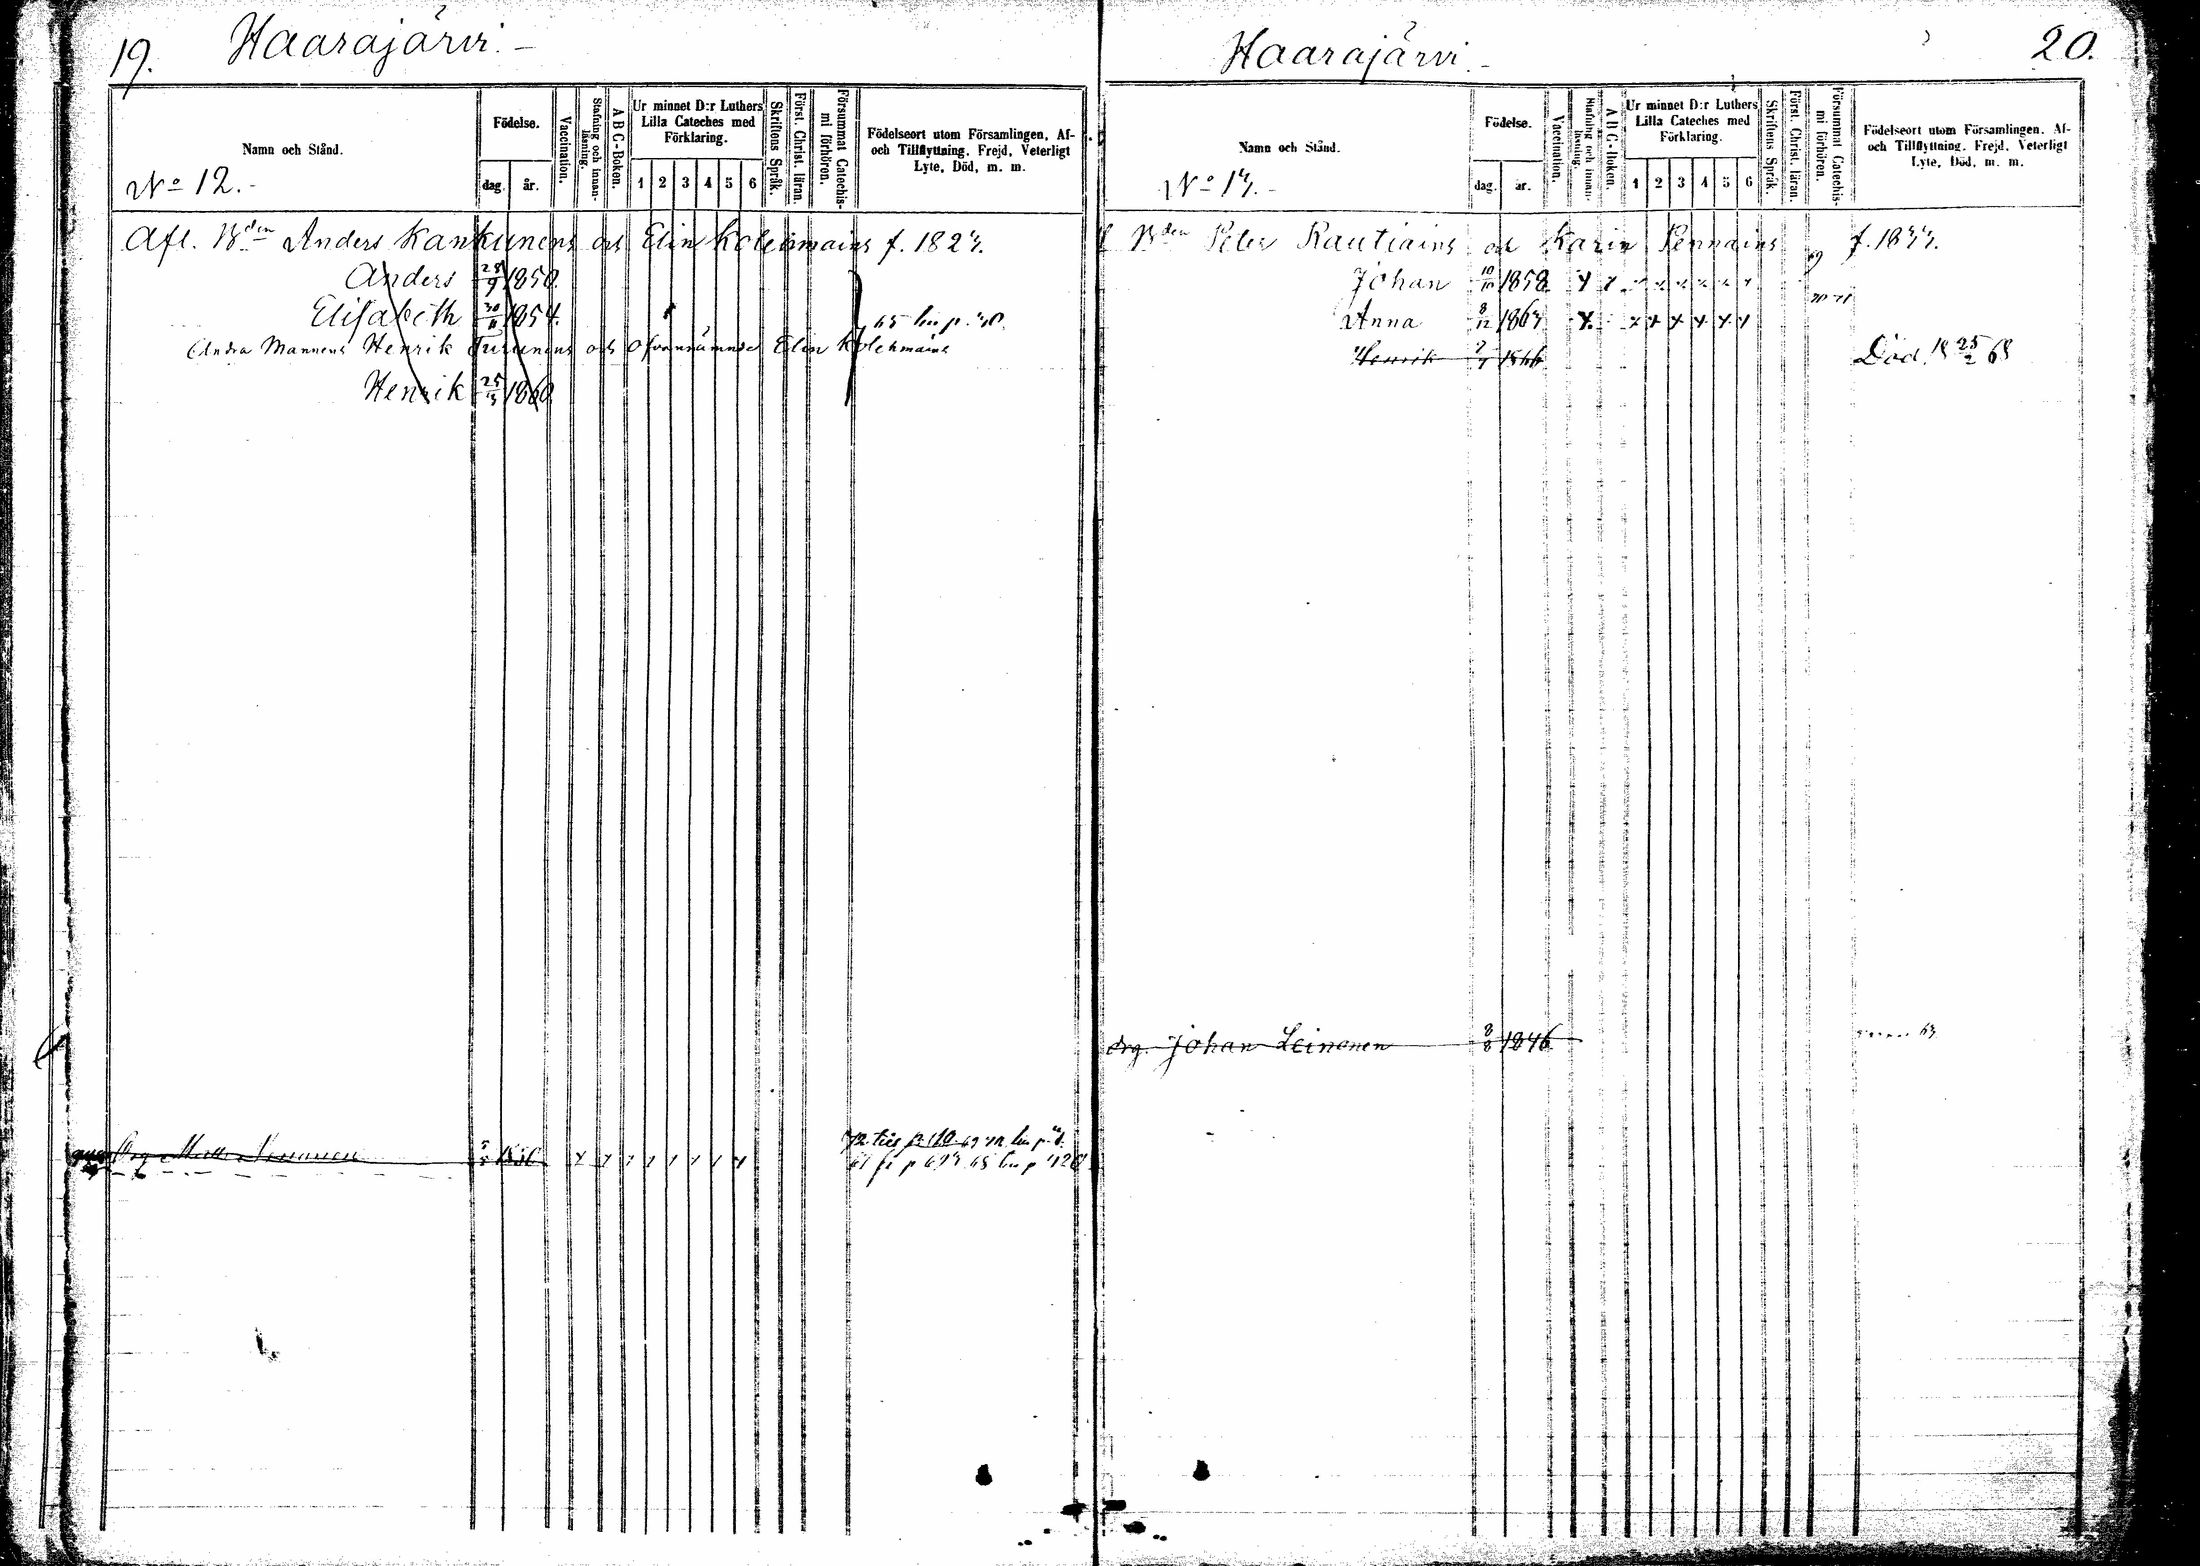 19. Haarajärvi. -
Namn och Stånd.
No 12. -
Födelse.
dag. år.
Vaccination.
Stafning och innanläsning.
A B C-Boken.
Ur minnet D:r Luthers Lilla Cateches med Förklaring.
1 2 3 4 5 6
Skriftens Språk.
Först. Christ. läran.
Försummat Catechismi förhören.
Födelseort utom Församlingen, Af- och Tillflyttning, Frejd, Veterligt Lyte, Död, m. m.
Afl. Bden Anders Kankunens och Elin Kolehmains f. 1823.
Anders 28/9 1850.
Elisabeth 30/11 1854.
Andra Mannens Henrik Turunens och Ofvannämnde Elin Kolehmains
Henrik 25/3 1860
Haarajärvi. - 20.
Namn och Stånd.
No 13. -
Födelse.
dag. år.
Vaccination.
Stafning och innanläsning.
A B C-Boken.
Ur minnet D:r Luthers Lilla Cateches med Förklaring.
1 2 3 4 5 6
Skriftens Språk.
Först. Christ. läran.
Försummat Catechismi förhören.
Födelseort utom Församlingen, Af- och Tillflyttning, Frejd, Veterligt Lyte, Död, m. m.
Bden Peter Rautiains och Karin Pennains f. 1833.
Johan 10/10 1858
Anna 8/12 1863
Henrik 1866 Död 18 25/2 68
drg. Johan Leinonen 8/8 1846